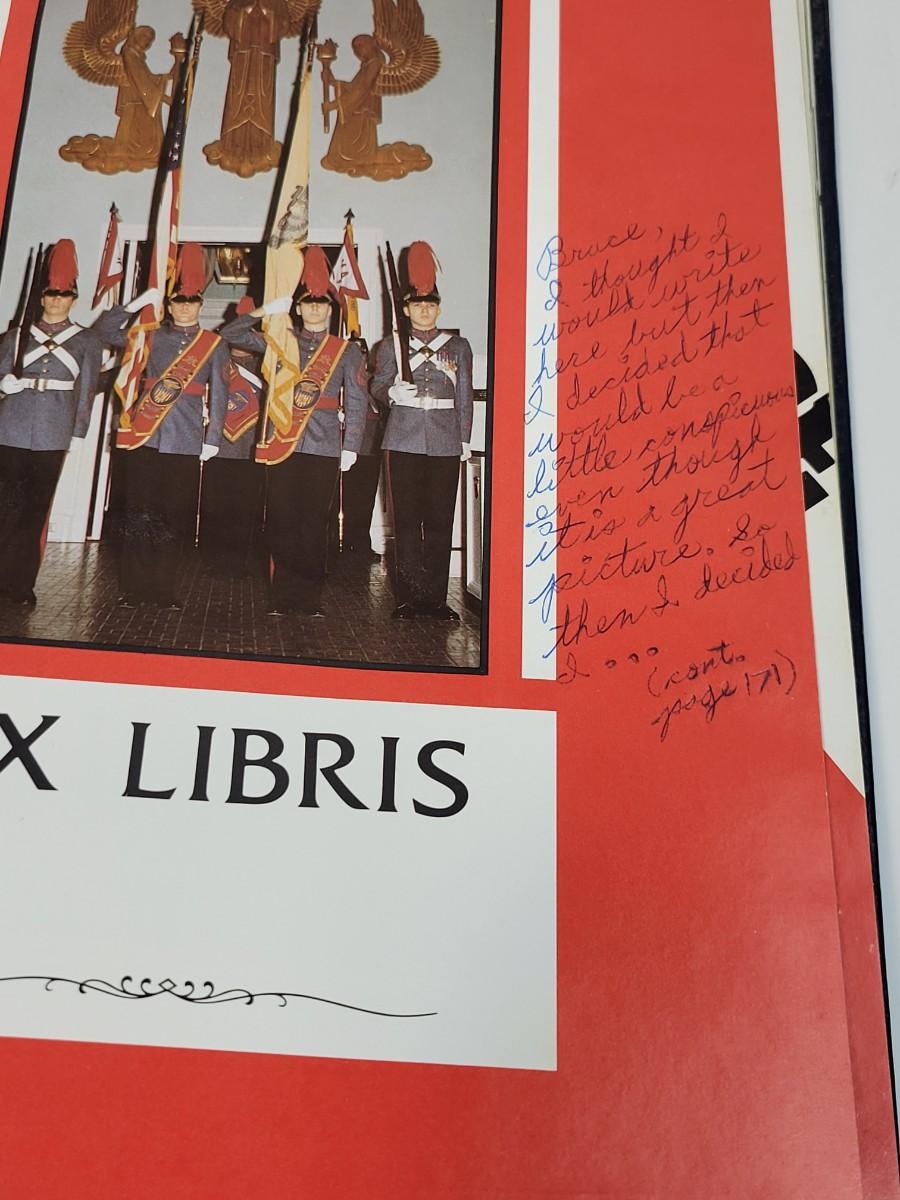 Bruce,
I thought I
would write
here but then
I decided that
would be a
little conspicuous
even though
it is a great
picture. So
then I decided
I ...
(cont.
page 171)
X LIBRIS